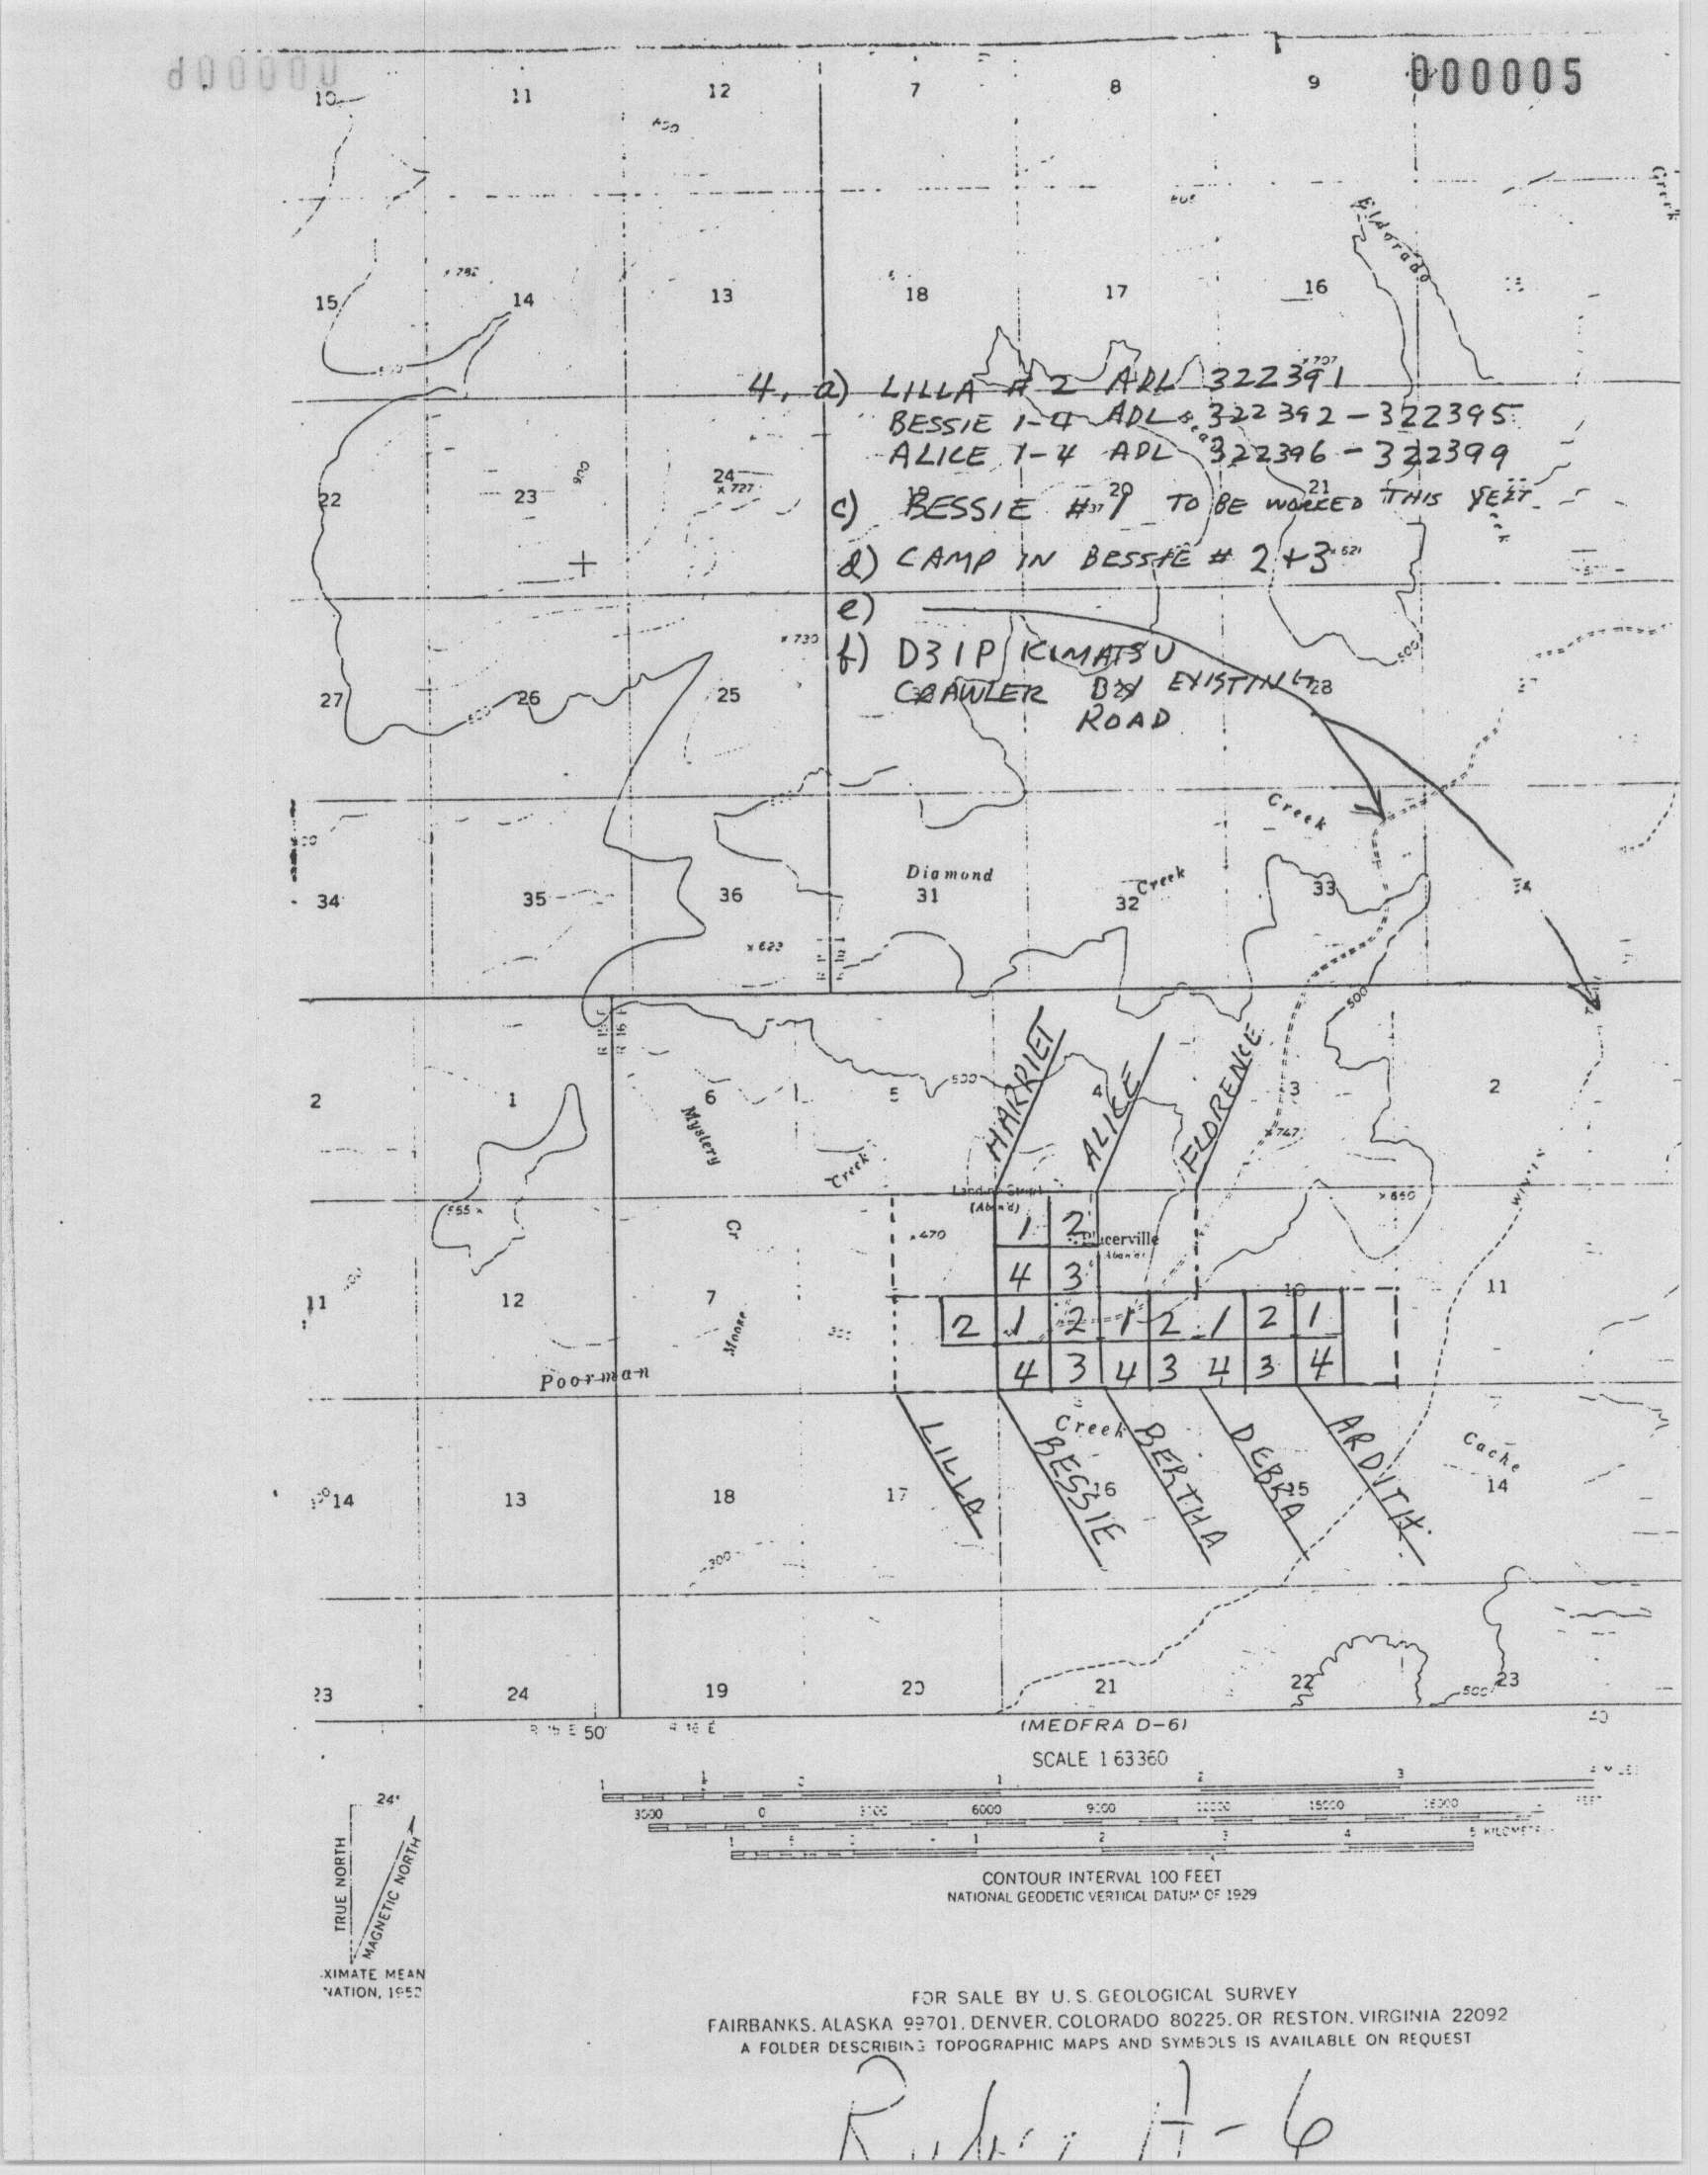 000005
10 11 12 7 8 9
Creek
Eldorado
782
15 14 13 18 17 16
x 707
4. a) LILLA # 2 ADL 322391
BESSIE 1-4 ADL 322392-322395
ALICE 1-4 ADL 322396-322399
24
x 727
22 23 20 21
c) BESSIE # 1 TO BE WORKED THIS
d) CAMP IN BESSIE # 2+3
x 621
e)
x 730
500
f) D31P KOMATSU
27 26 25 28
CRAWLER BY EXISTING
ROAD
500
Creek
Diamond Creek
34 35 36 31 32 33 34
x 623
500
R 16 E
500
HARRIET ALICE FLORENCE
2 1 6 5 4 3 2
Mystery
Creek
x 747
WINTER
Landing Strip
(Aban'd)
x 650
555 x
Cr
x 470
1 2
Placerville
4 3
11 12 7 10 11
Moose
2 1 2 1 2 1 2 1
4 3 4 3 4 3 4
Poorman
Creek
Cache
LILLA BESSIE BERTHA DEBRA ARDITH
14 13 18 17 16 15 14
300
23 24 19 20 21 22 23
500
50'
R 16 E
(MEDFRA D-6)
40
SCALE 1 63360
1 1 2 3 4 MILES
3000 0 3000 6000 9000 12000 15000 18000 FEET
1 5 1 2 3 4 5 KILOMETERS
24°
TRUE NORTH
MAGNETIC NORTH
CONTOUR INTERVAL 100 FEET
NATIONAL GEODETIC VERTICAL DATUM OF 1929
XIMATE MEAN
NATION, 1952
FOR SALE BY U.S. GEOLOGICAL SURVEY
FAIRBANKS, ALASKA 99701, DENVER, COLORADO 80225, OR RESTON, VIRGINIA 22092
A FOLDER DESCRIBING TOPOGRAPHIC MAPS AND SYMBOLS IS AVAILABLE ON REQUEST
A-6